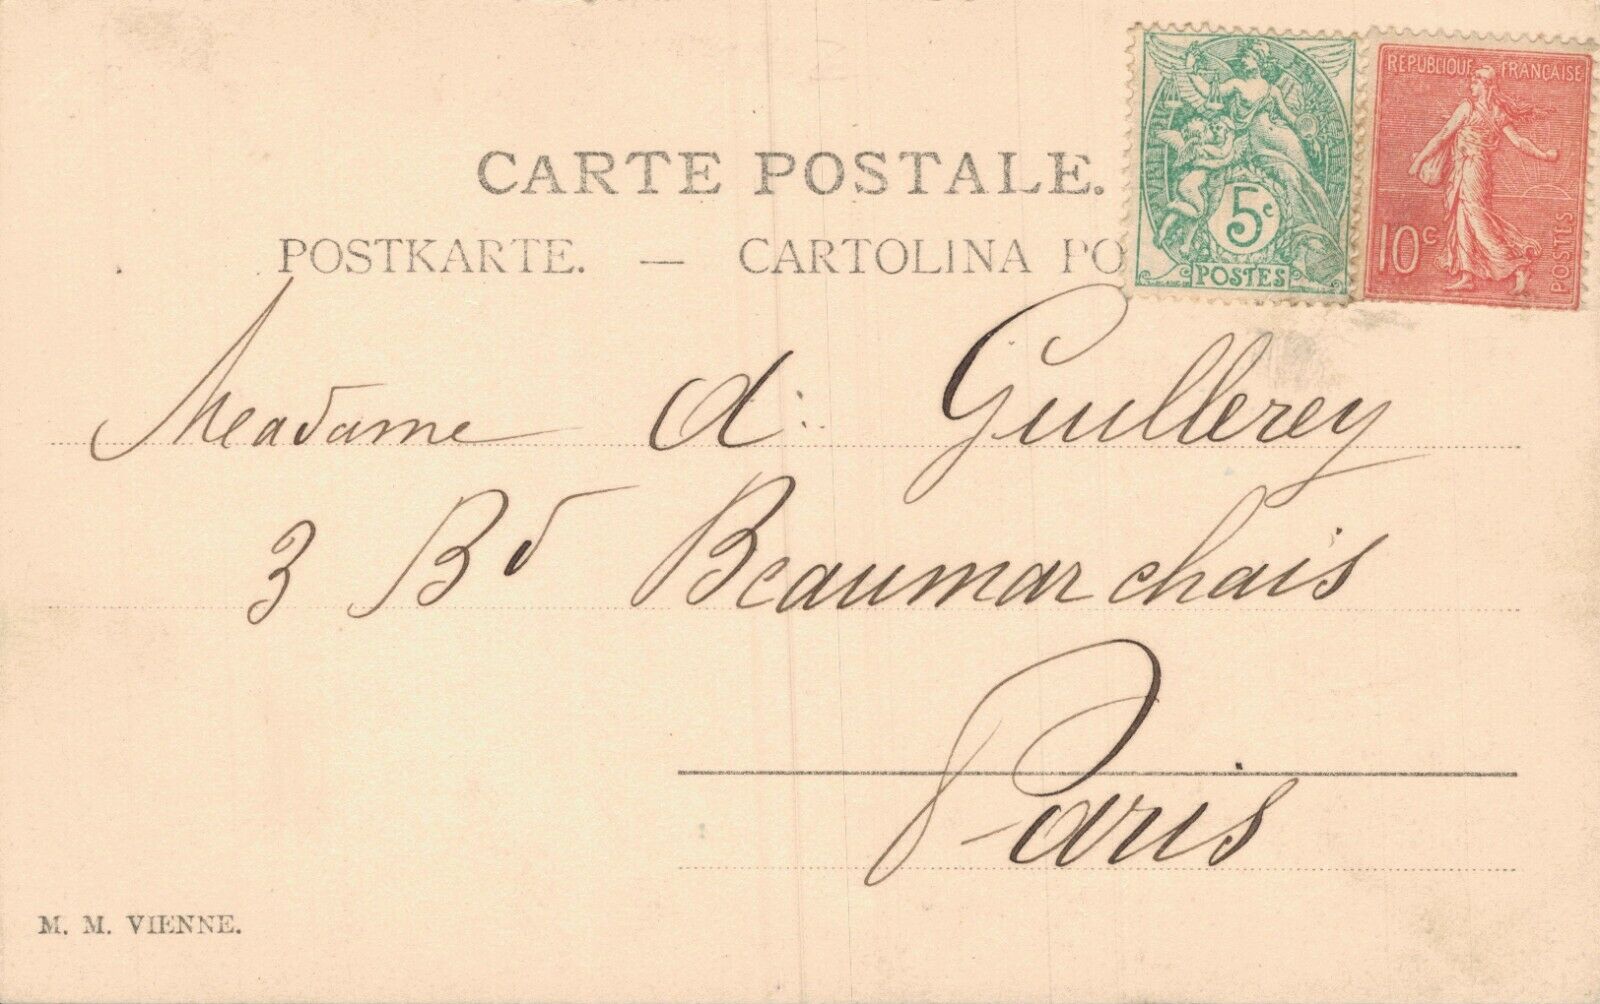 CARTE POSTALE.
POSTKARTE. — CARTOLINA PO
5c
POSTES
REPUBLIQUE FRANÇAISE
10c
POSTES
Madame d: Guillerey
3 Bd Beaumarchais
Paris
M. M. VIENNE.